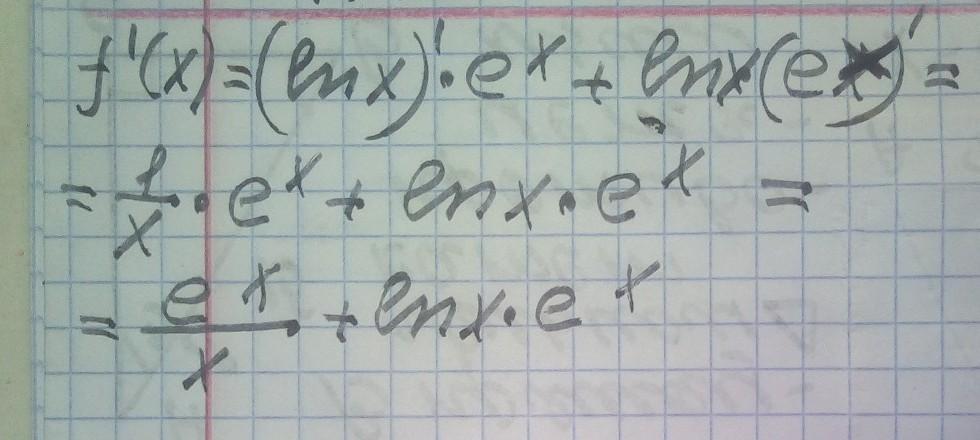 f'(x)=(lnx)'·e^x + lnx(e^x)'=
= 1/x · e^x + lnx·e^x =
= e^x/x + lnx·e^x